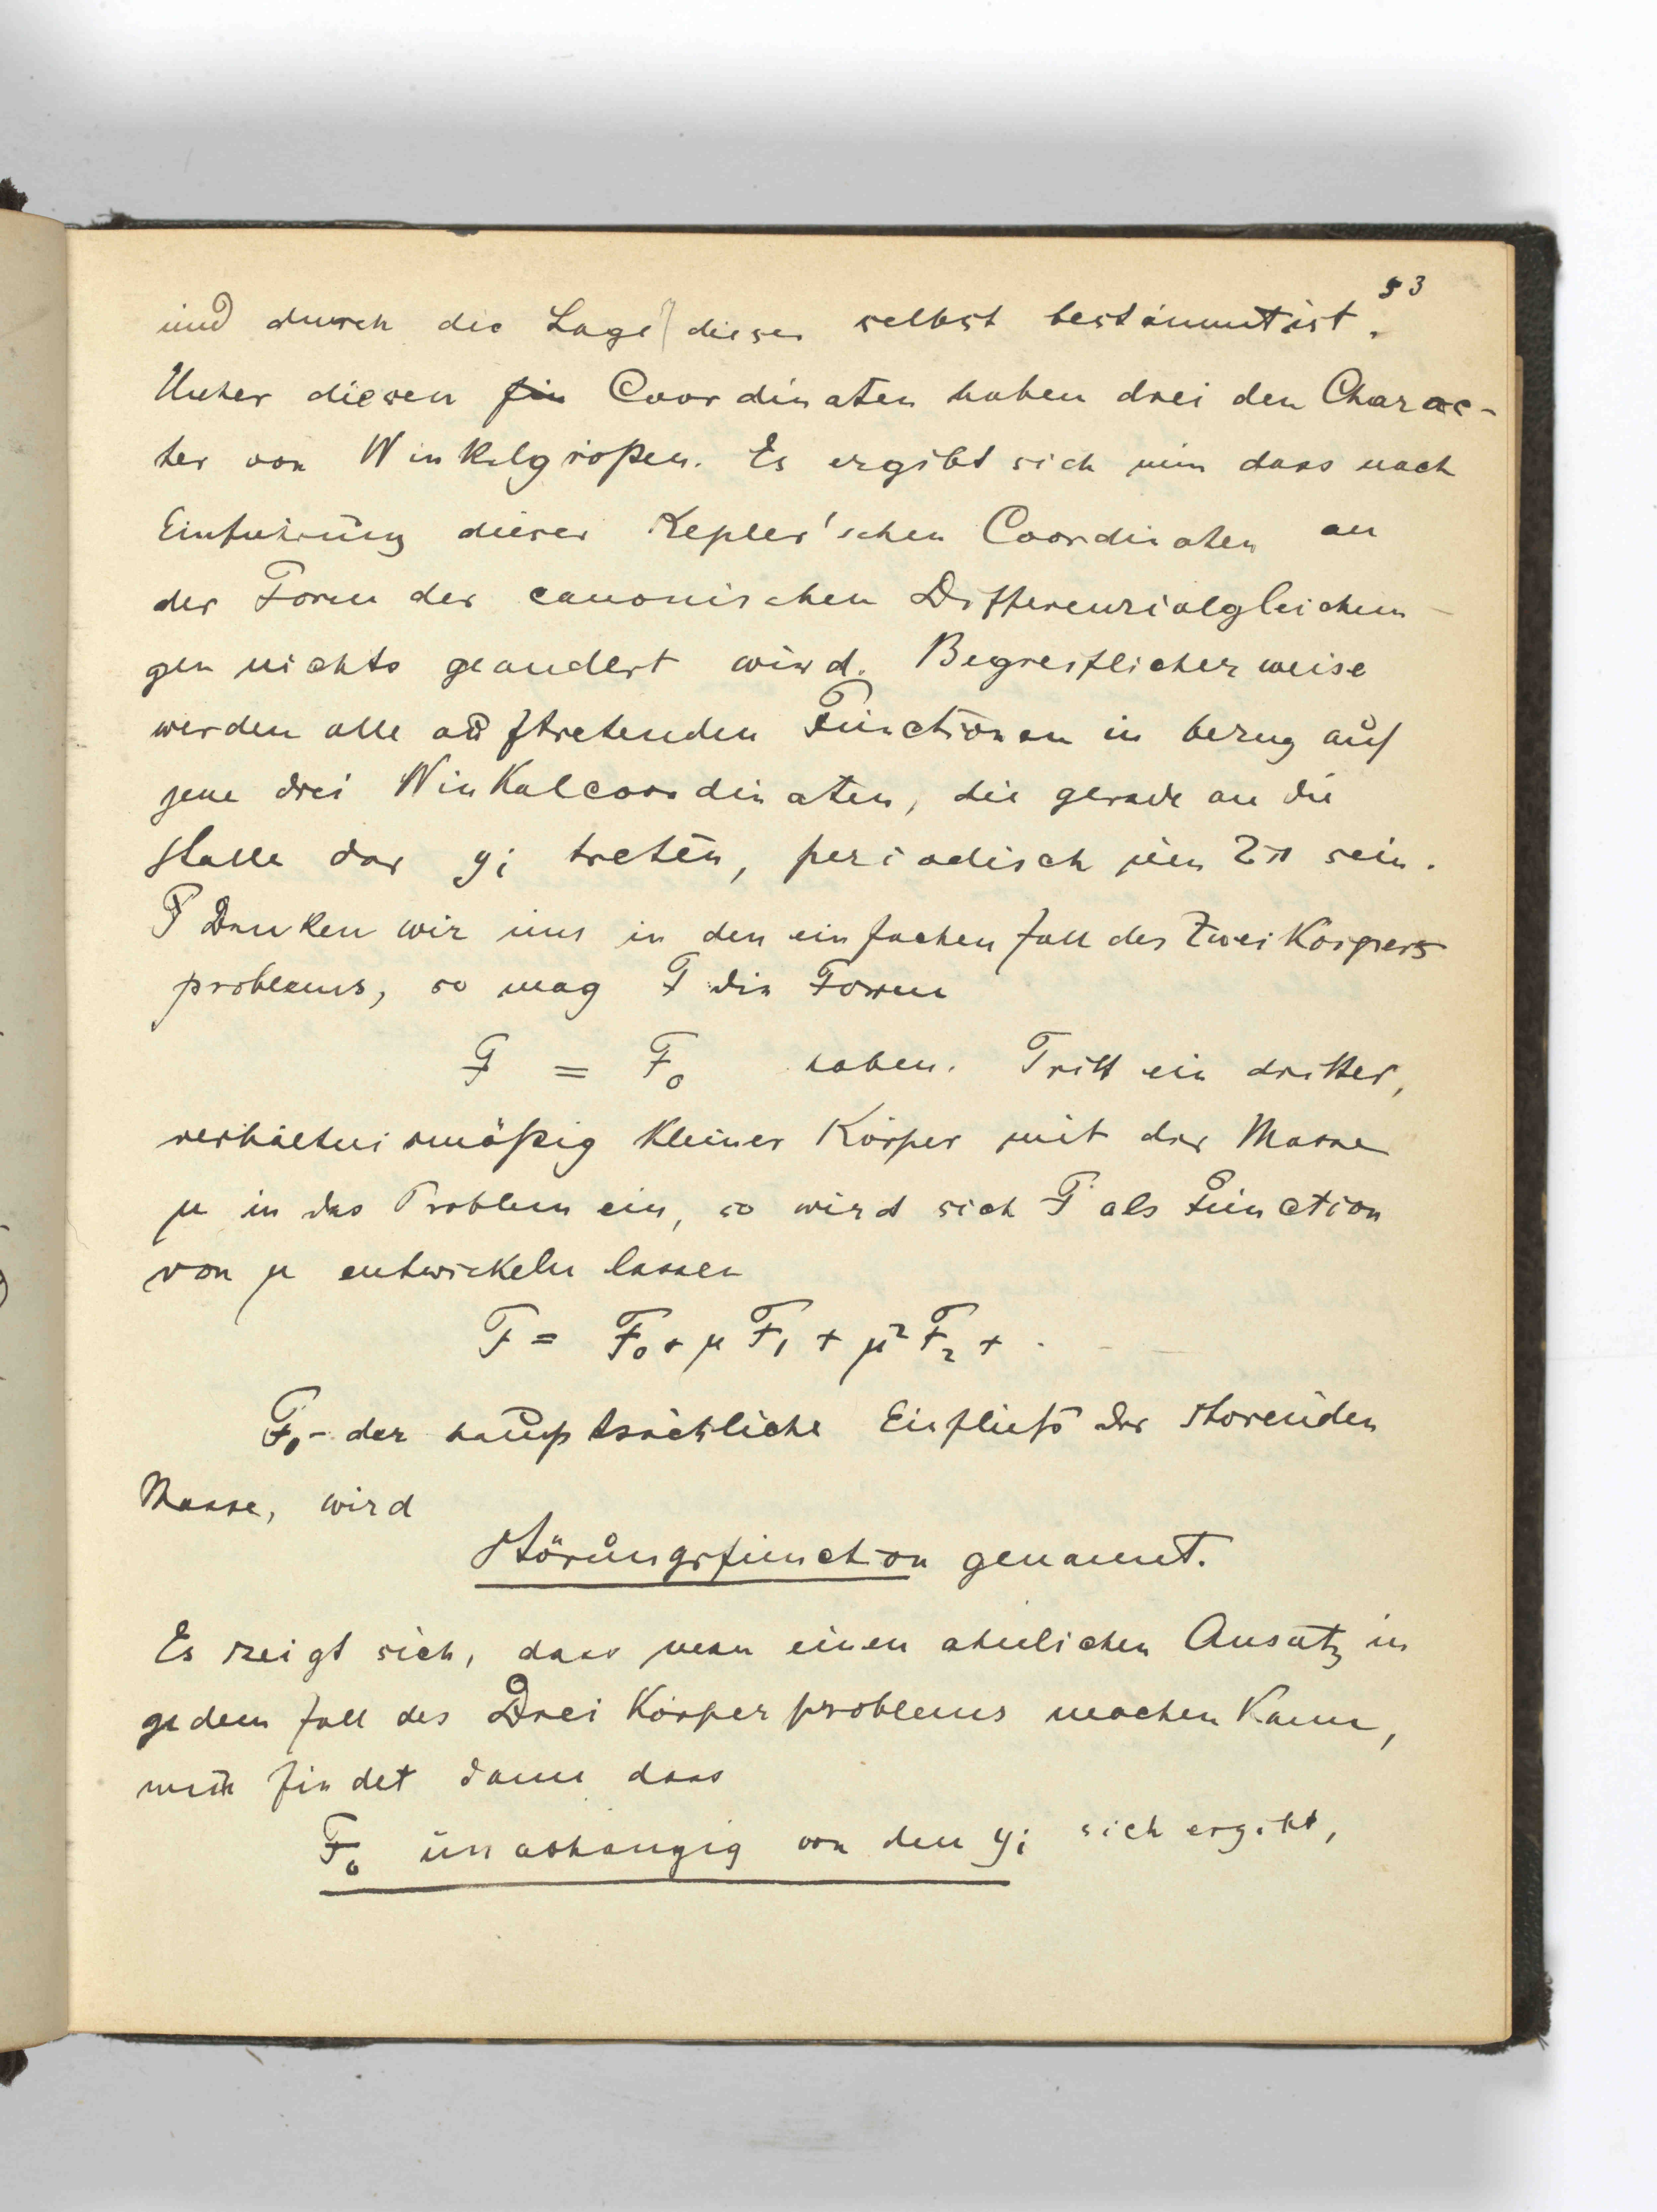 53
und durch die Lage dieser selbst bestimmt ist.
Unter diesen fün Coordinaten haben drei den Charac-
ter von Winkelgrößen. Es ergibt sich nun dass nach
Einfuhrung dieser Kepler'schen Coordinaten an
der Form der canonischen Differenzialgleichun-
gen nichts geandert wird. Begreiflicherweise
werden alle auftretenden Functionen in bezug auf
jene drei Winkelcoordinaten, die gerade an die
Stelle der yi treten, periodisch um 2π sein.
Denken wir uns in den einfachen Fall des Zweikorpers
problems, so mag F die Form
F = F₀ haben. Tritt ein dritter,
verhältnismäßig kleiner Körper mit der Masse
μ in das Problem ein, so wird sich F als Function
von μ entwickeln lassen
F = F₀ + μ F₁ + μ² F₂ + . - -
F₁ - der hauptsächliche Einfluß der storenden
Masse, wird
Störungsfunction genannt.
Es zeigt sich, dass man einen ahnlichen Ansatz in
jedem Fall des Dreikörperproblems machen kann,
man findet dann dass
F₀ unabhangig von den yi sich ergibt,